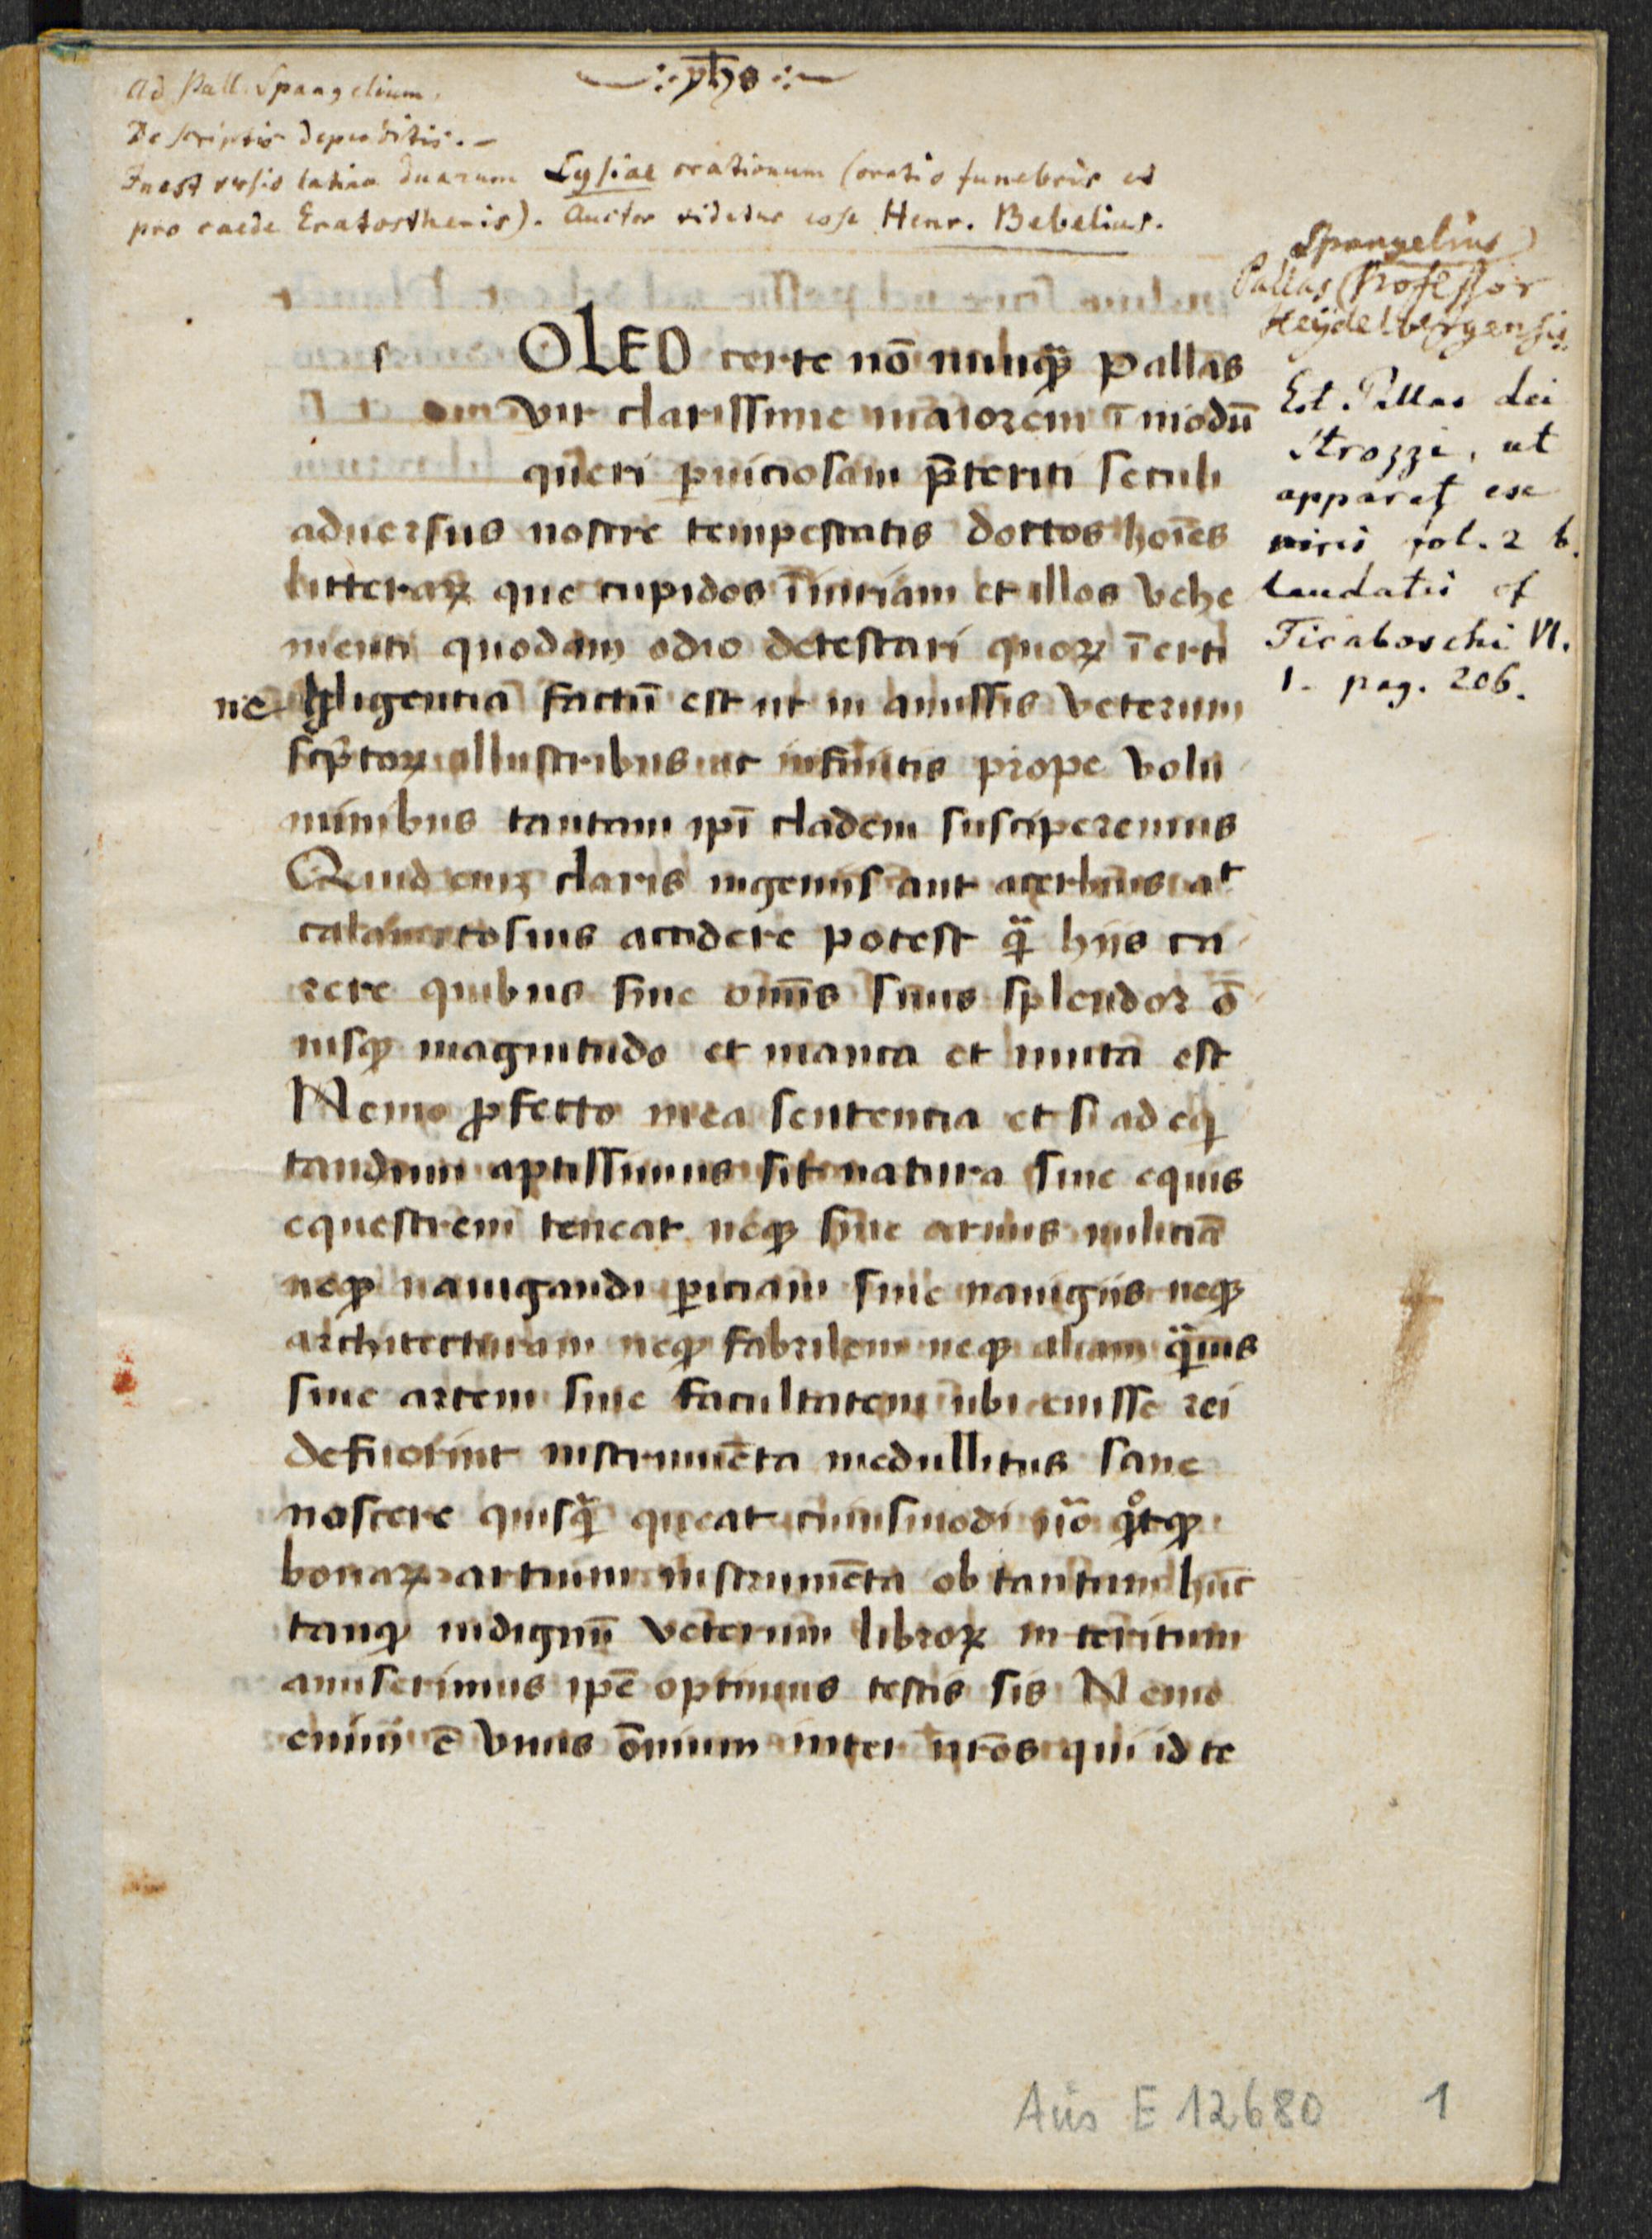 yhs
Ad Pall. Spangelium.
De scriptis deperditis. -
Inest versio latina duarum Lysiae orationum (oratio funebris et
pro caede Eratosthenis). Auctor videtur esse Henr. Bebelius.
Spangelius
Pallas Professor
Heydelbergensis.
Est Pallas dei
Strozzi, ut
apparet exe
viris fol. 2 b.
laudatis cf
Tiraboschi VI.
1. pag. 206.
s OLEO certe nō nunq̄ꝫ pallas
vir clarissime maiorem ī modū
queri ꝑniciosam p̄teriti seculi
aduersus nostre tempestatis doctos hoīes
litteraꝝ que cupidos īiuriam et illos vehe
menti quodam odio detestari quoꝝ īerti
ne gligentia factū est ut in amissis veterum
scptoꝝ illustribus ac infinitis prope volu
minibus tantam ipī cladem susciperemus
Quid eniꝫ claris ingeniis aut acerbius at
calamitosius accidere potest q̄ hijs ca
rere quibus sine om̄is suus splendor ō
nisqꝫ magnitudo et manca et muta est
Nemo ꝓfecto mea sententia et si ad eq
tandum aptissimus sit natura sine equis
equestrem teneat neqꝫ sine armis militiā
neqꝫ nauigandi ꝑiciam sine nauigiis neqꝫ
architecturam neqꝫ fabrilem neqꝫ aliam q̄uis
siue artem siue facultatem ubi eiusse rei
defuerint instrumēta medullitus sane
noscere quisq̄ queat cuiusmodi ūo qͦtqꝫ
bonaꝝ artium instrumēta ob tantum hūc
tamqꝫ indignū veterum libroꝝ interitum
amiserimus ipē optimus testis sis Nemo
enim ē vnus ōnium inter nr̄os qui id te
Aus E 12680 1